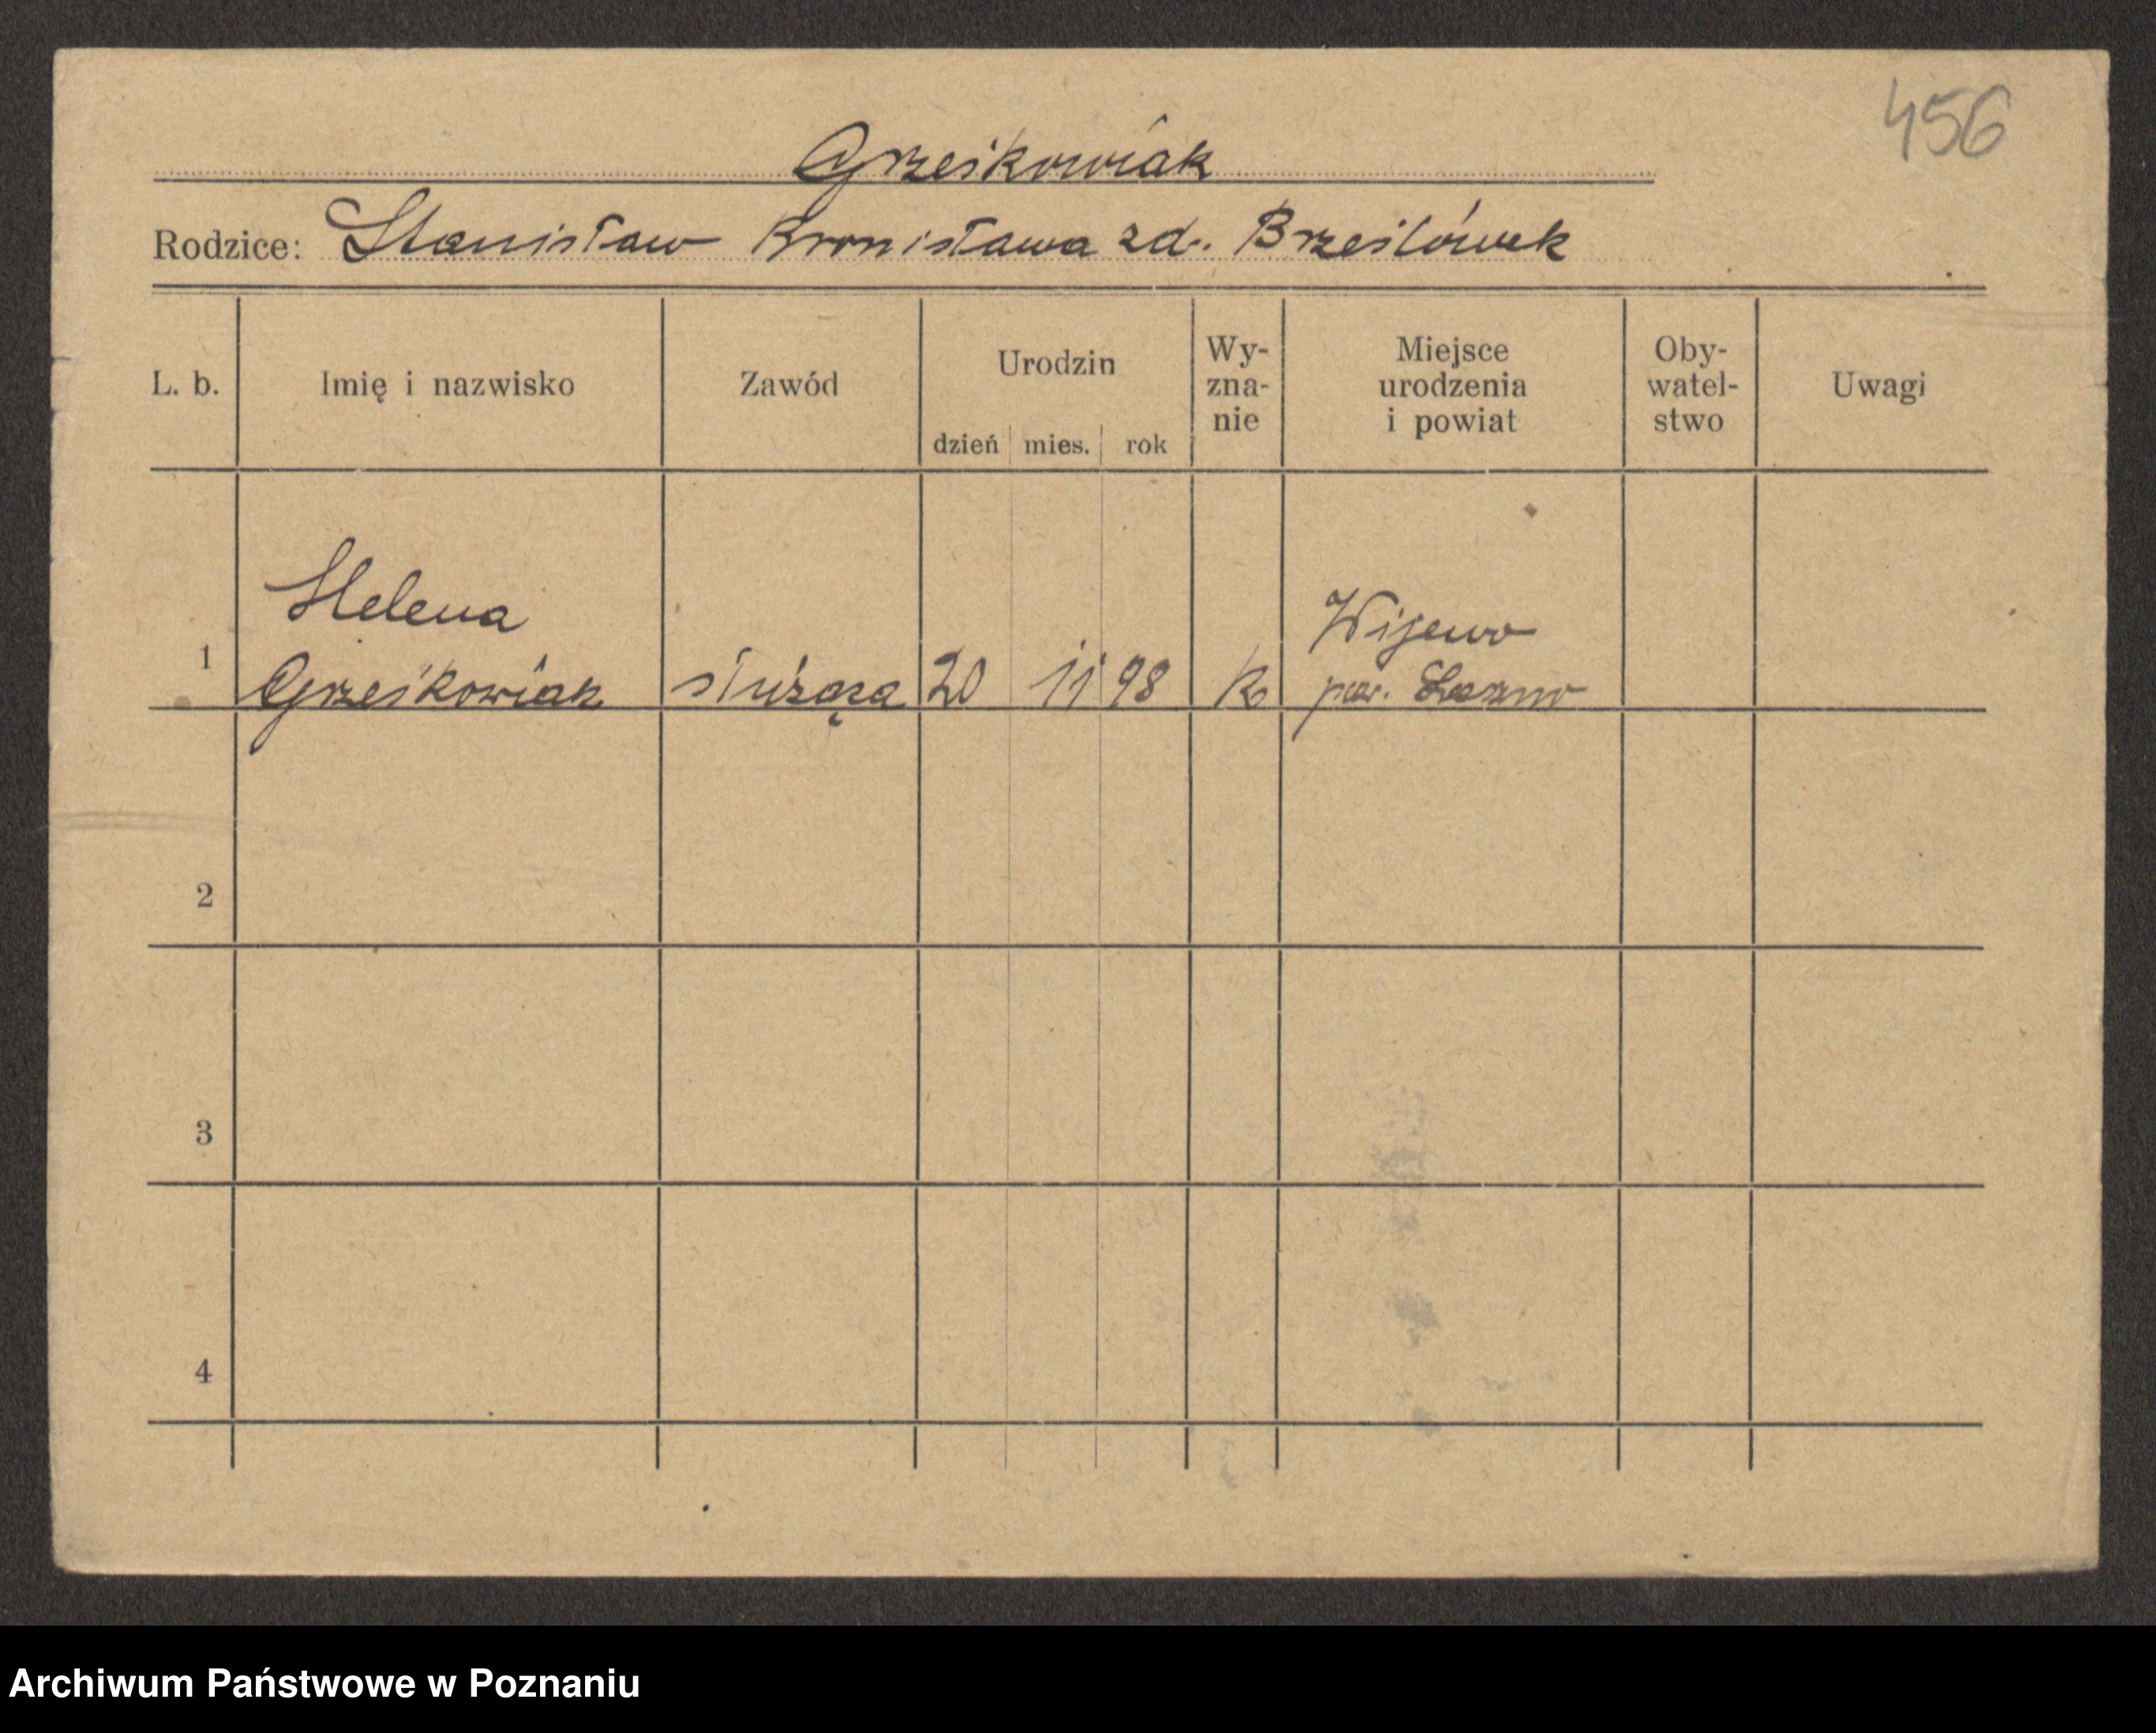 456
Grześkowiak
Rodzice: Stanisław Bronisława zd. Brześlówek
L. b. Imię i nazwisko Zawód Urodzin dzień mies. rok Wy-zna-nie Miejsce urodzenia i powiat Oby-watel-stwo Uwagi
Helena Wijewo
1 Grześkowiak służąca 20 11 98 k pow. Leszno
2
3
4
Archiwum Państwowe w Poznaniu